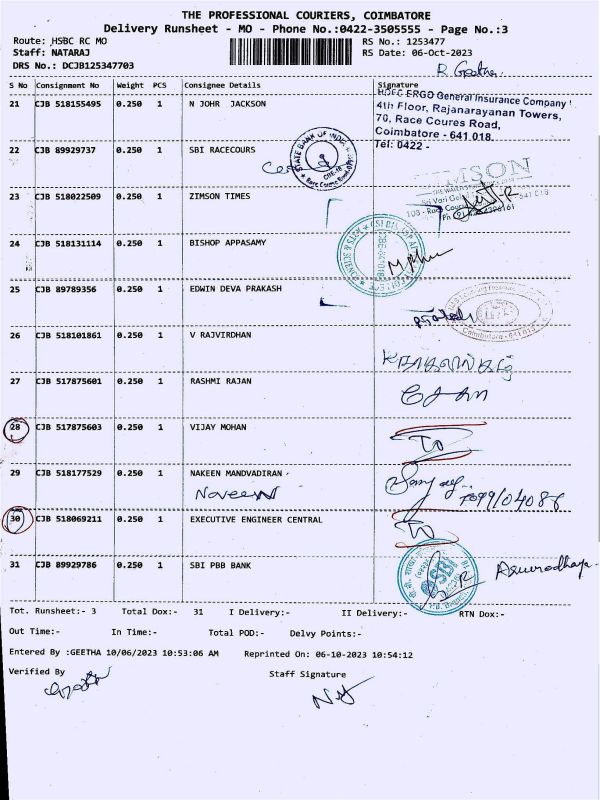 THE PROFESSIONAL COURIERS, COIMBATORE
Delivery Runsheet - MO - Phone No.:0422-3505555 - Page No.:3
Route: HSBC RC MO RS No.: 1253477
Staff: NATARAJ RS Date: 06-Oct-2023
DRS No.: DCJB125347703
R. Geetha
S No Consignment No Weight PCS Consignee Details Signature
21 CJB 518155495 0.250 1 N JOHR JACKSON
HDFC ERGO General Insurance Company
4th Floor, Rajanarayanan Towers,
70, Race Coures Road,
Coimbatore - 641 018.
Tel: 0422 -
22 CJB 89929737 0.250 1 SBI RACECOURS
STATE BANK OF INDIA
23 CJB 518022509 0.250 1 ZIMSON TIMES
24 CJB 518131114 0.250 1 BISHOP APPASAMY
25 CJB 89789356 0.250 1 EDWIN DEVA PRAKASH
Coimbatore - 641 018
26 CJB 518101861 0.250 1 V RAJVIRDHAN
27 CJB 517875601 0.250 1 RASHMI RAJAN
28 CJB 517875603 0.250 1 VIJAY MOHAN
TO
29 CJB 518177529 0.250 1 NAKEEN MANDVADIRAN
Naveen
30 CJB 518069211 0.250 1 EXECUTIVE ENGINEER CENTRAL
TO
31 CJB 89929786 0.250 1 SBI PBB BANK
SBI
Tot. Runsheet:- 3 Total Dox:- 31 I Delivery:- II Delivery:- RTN Dox:-
Out Time:- In Time:- Total POD:- Delvy Points:-
Entered By :GEETHA 10/06/2023 10:53:06 AM Reprinted On: 06-10-2023 10:54:12
Verified By Staff Signature